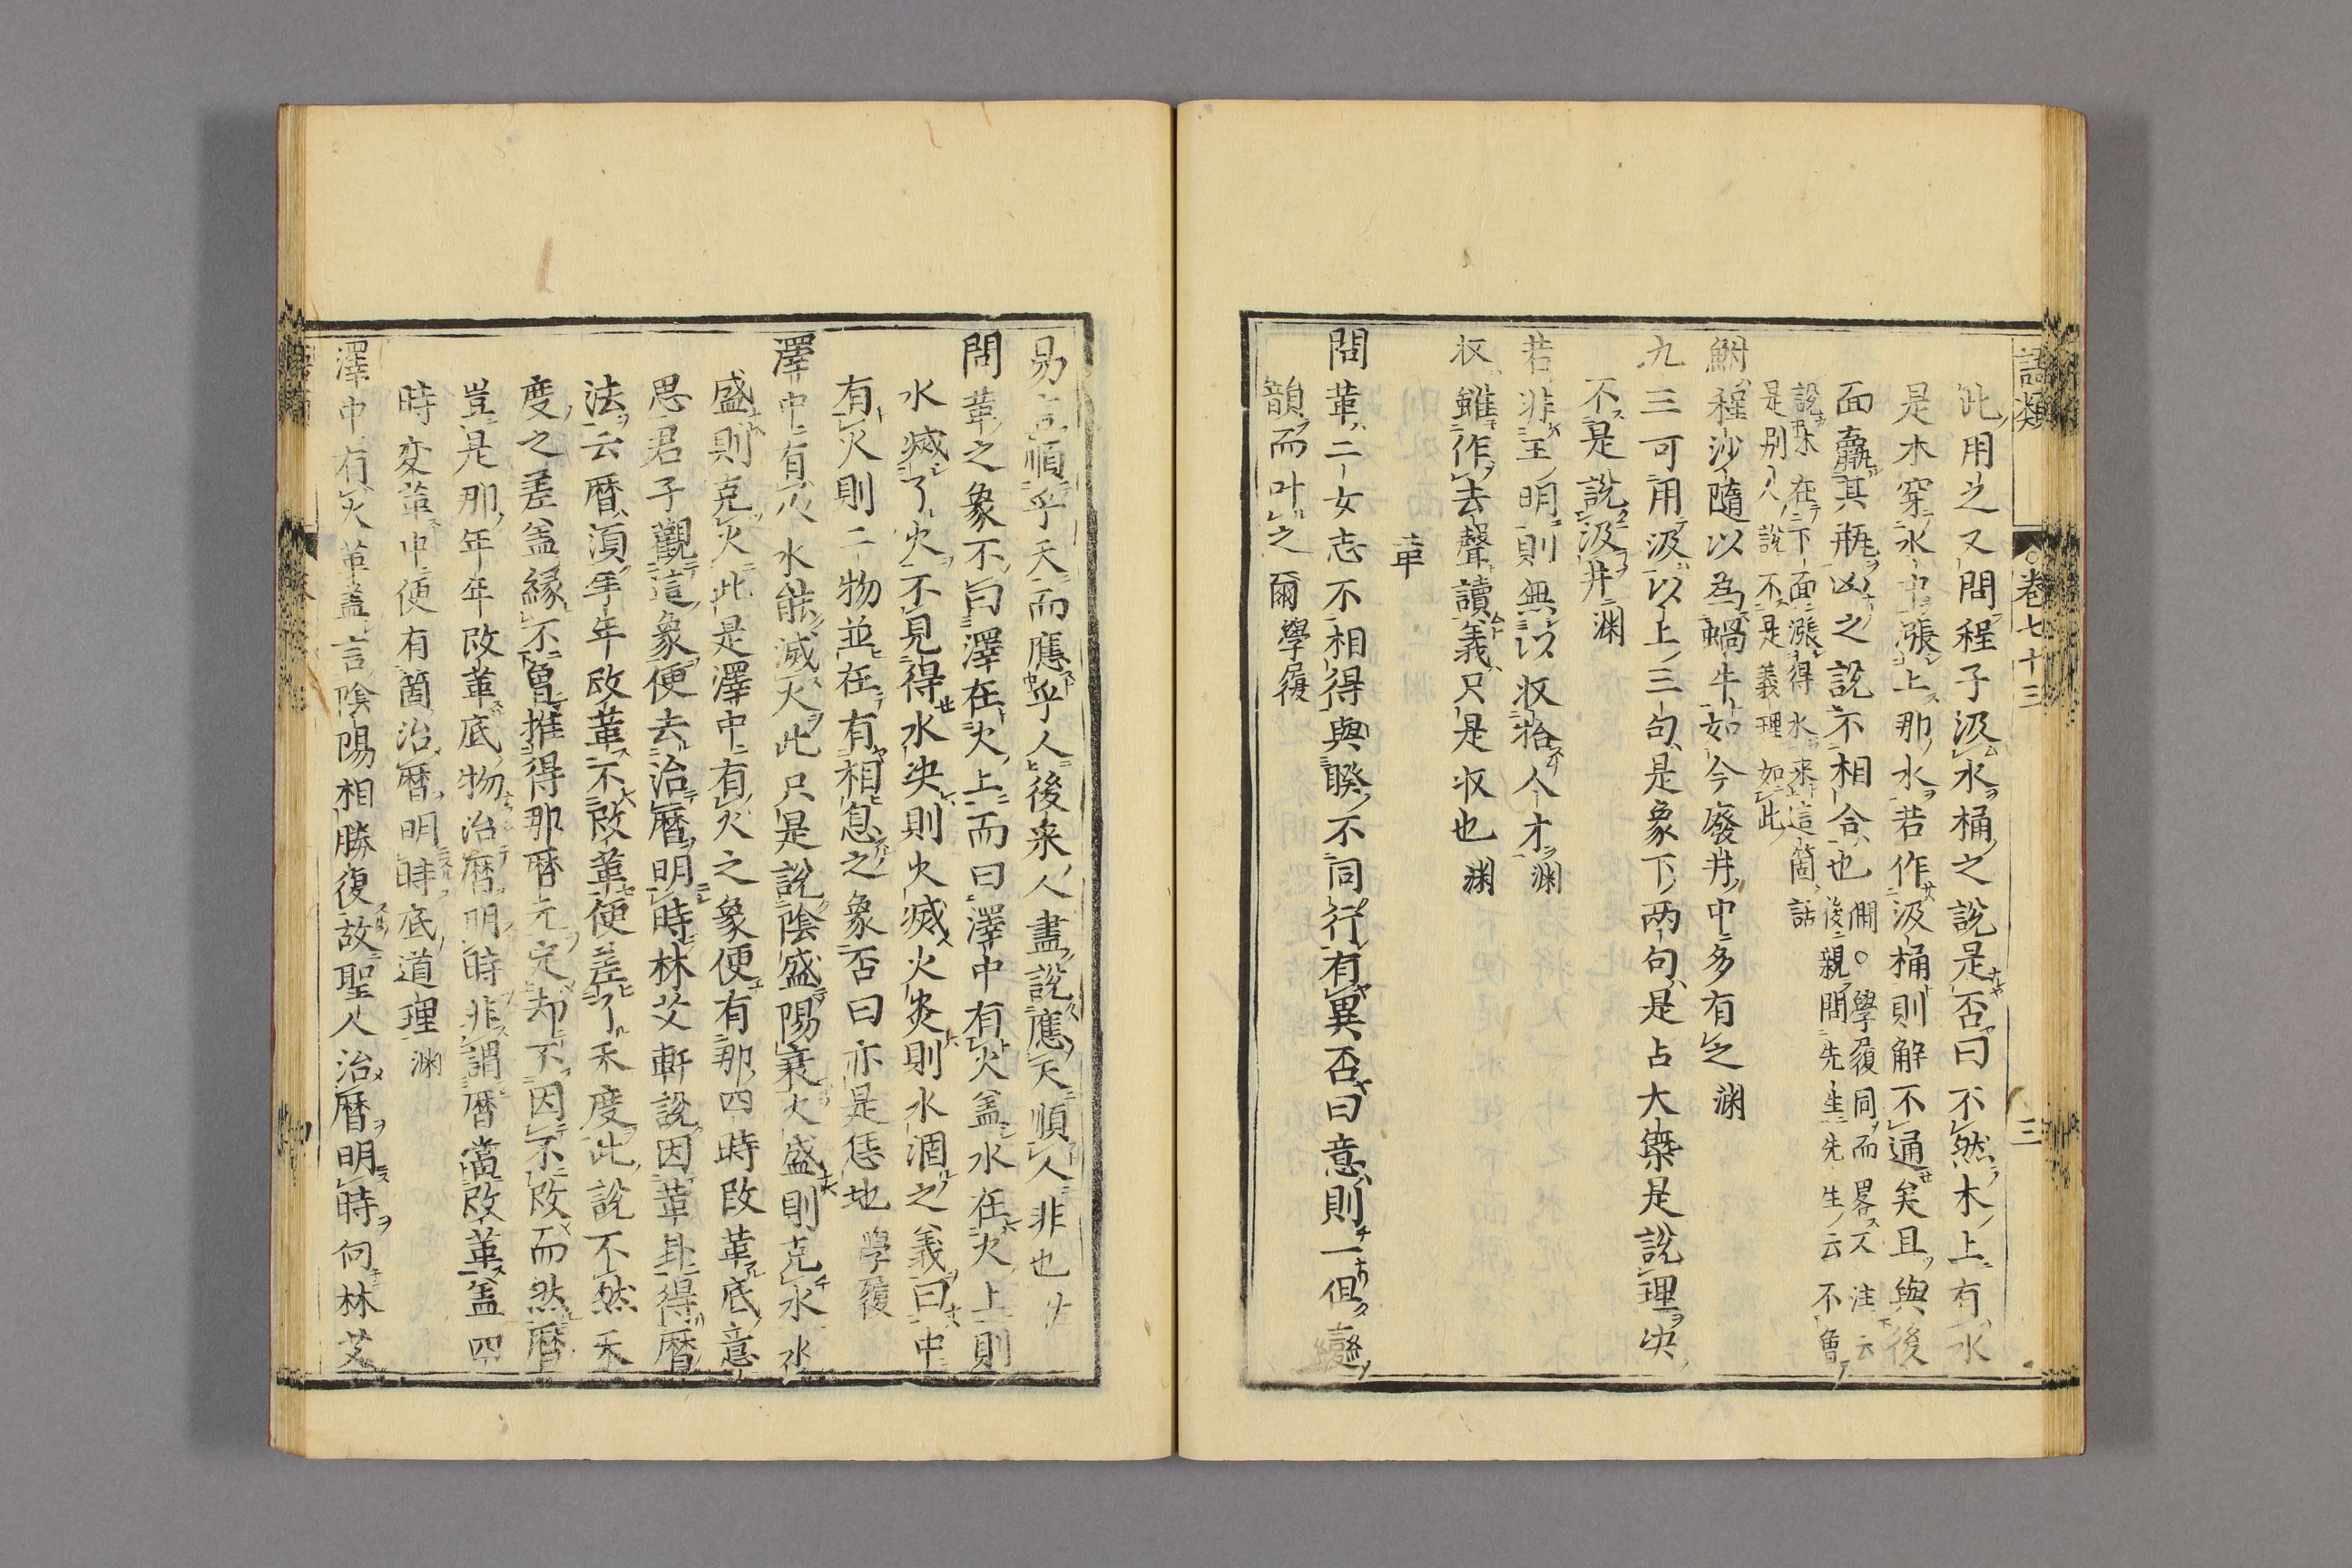 語類 ○卷七十三 三
此用之又問程子汲水桶之說是否曰不然木上有水
是木穿水中漲上那水若作汲桶則解不通矣且與後
面羸其瓶凶之說不相合也 僴○學履同而畧又注云
後親問先生先生云不曾
說木在下面漲得水來這箇話
是別人說不是義理如此
鮒程沙隨以為蝸牛如今廢井中多有之 渊
九三可用汲以上三句是象下両句是占大槩是說理决
不是說汲井 渊
若非王明則無以収拾人才 渊
収雖作去聲讀義只是収也 渊
革
問革二女志不相得與睽不同行有異否曰意則一但變
韻而叶之爾 學履
易言順乎天而應乎人後来人盡說應天順人非也
問革之象不曰澤在火上而曰澤中有火盖水在火上則
水滅了火不見得水决則火滅火炎則水涸之義曰中
有火則二物並在有相息之象否曰亦是恁地 學履
澤中有火水能滅火此只是說陰盛陽衰火盛則克水水
盛則克火此是澤中有火之象便有那四時改革底意
思君子觀這象便去治曆明時林艾軒說因革卦得曆
法云曆須年年改革不改革便差了天度此說不然天
度之差盖緣不曾推得那曆元定却不因不改而然曆
豈是那年年改革底物治曆明時非謂曆當改革盖四
時变革中便有箇治曆明時底道理 渊
澤中有火革盖言陰陽相勝復故聖人治曆明時向林艾